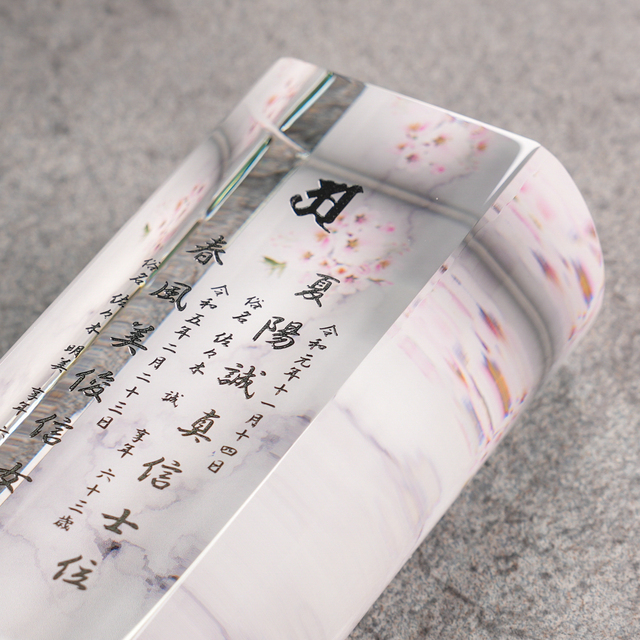 令和元年十一月十四日
夏陽誠真信士位
俗名 佐々木 誠 享年 六十二歳
令和五年二月二十二日
春風美俊信女
俗名 佐々木 享年